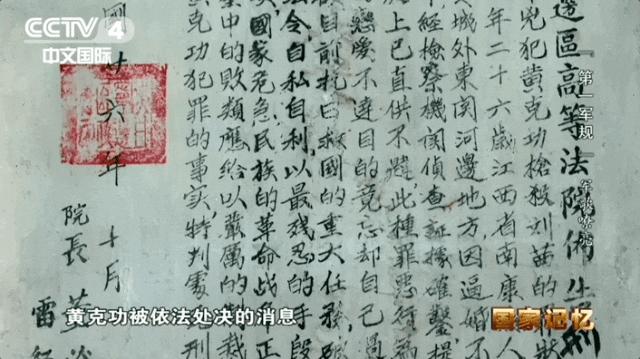 CCTV 4
中文国际
第一军规
區高等法院佈
兇犯黄克功槍殺刘茜的
年二十六歲江西省南康人
城外東関河邊地方因逼婚不
經檢察機関偵查証據確鑿提
上已直供不諱此種罪惡行為
戀愛不達目的竟忘却自己
目前抗日救國的重大任務
法令自私自利以最残忍的手段
國家危急民族的革命战争
中的敗類應給以嚴厲的制裁
克功犯罪的事实特判處
國廿六年 十月
院長
雷
黄克功被依法处决的消息
国家记忆